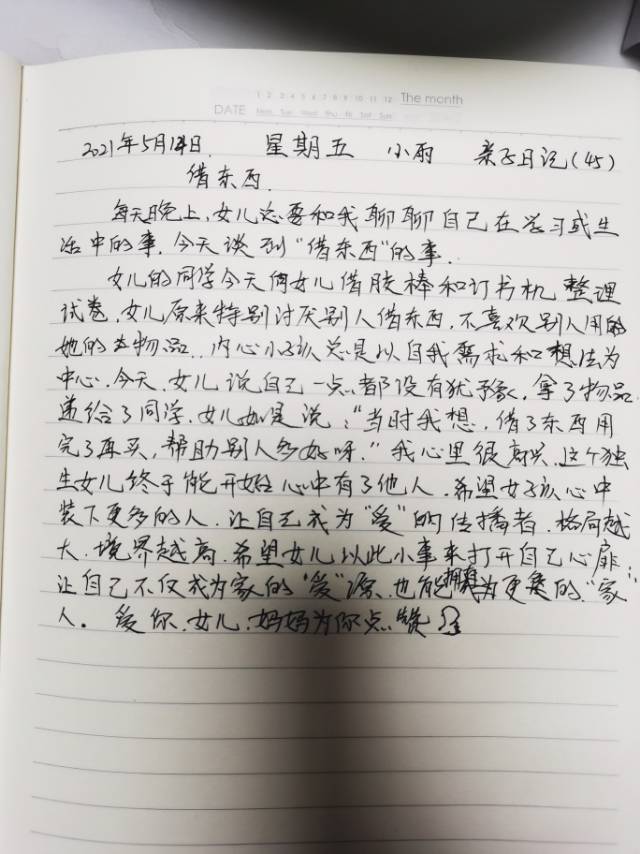 1 2 3 4 5 6 7 8 9 10 11 12 The month
DATE Mon Tue Wed Thu Fri Sat Sun
2021年5月14日. 星期五 小雨 亲子日记(45)
借东西.
每天晚上,女儿总要和我聊聊自己在学习或生
活中的事.今天谈到"借东西"的事.
女儿的同学今天俩女儿借胶棒和订书机整理
试卷.女儿原来特别讨厌别人借东西,不喜欢别人用
她的物品.内心小孩总是以自我需求和想法为
中心.今天,女儿说自己一点都没有犹豫,拿了物品
递给了同学.女儿如是说:"当时我想,借了东西用
完了再买,帮助别人多好呀."我心里很高兴,这个独
生女儿终于能开始心中有了他人.希望女孩心中
装下更多的人.让自己成为"爱"的传播者.格局越
大.境界越高.希望女儿以此小事来打开自己心扉.
让自己不仅成为家的"爱"源.也能拥有更多的"家
人". 爱你.女儿.妈妈为你点赞